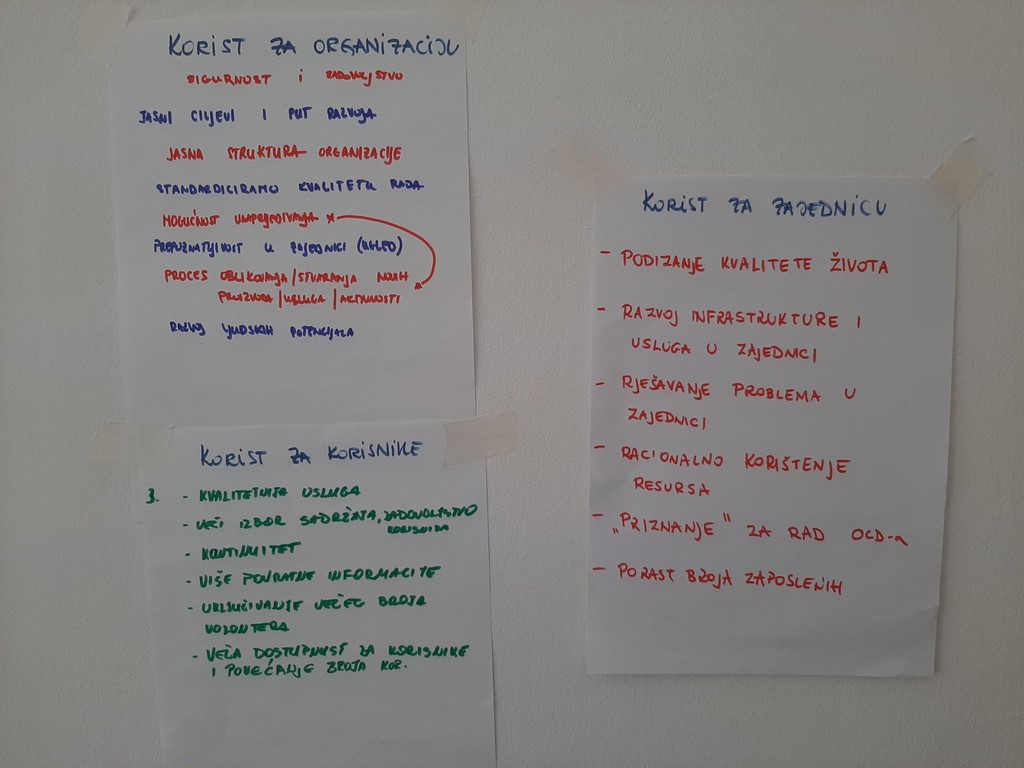 KORIST ZA ORGANIZACIJU
SIGURNOST i ZADOVOLJSTVO
JASNI CILJEVI I PUT RAZVOJA
JASNA STRUKTURA ORGANIZACIJE
STANDARDIZIRAMO KVALITETU RADA
MOGUĆNOST UNAPRJEĐIVANJA *
PREPOZNATLJIVOST U ZAJEDNICI (UGLED)
PROCES OBLIKOVANJA/STVARANJA NOVIH
PROIZVODA/USLUGA/AKTIVNOSTI
RAZVOJ LJUDSKIH POTENCIJALA
KORIST ZA KORISNIKE
3. - KVALITETNIJA USLUGA
- VEĆI IZBOR SADRŽAJA, ZADOVOLJSTVO
KORISNIKA
- KONTINUITET
- VIŠE POVRATNE INFORMACIJE
- UKLJUČIVANJE VEĆEG BROJA
VOLONTERA
- VEĆA DOSTUPNOST ZA KORISNIKE
I POVEĆANJE BROJA KOR.
KORIST ZA ZAJEDNICU
- PODIZANJE KVALITETE ŽIVOTA
- RAZVOJ INFRASTRUKTURE I
USLUGA U ZAJEDNICI
- RJEŠAVANJE PROBLEMA U
ZAJEDNICI
- RACIONALNO KORIŠTENJE
RESURSA
- „PRIZNANJE" ZA RAD OCD-a
- PORAST BROJA ZAPOSLENIH